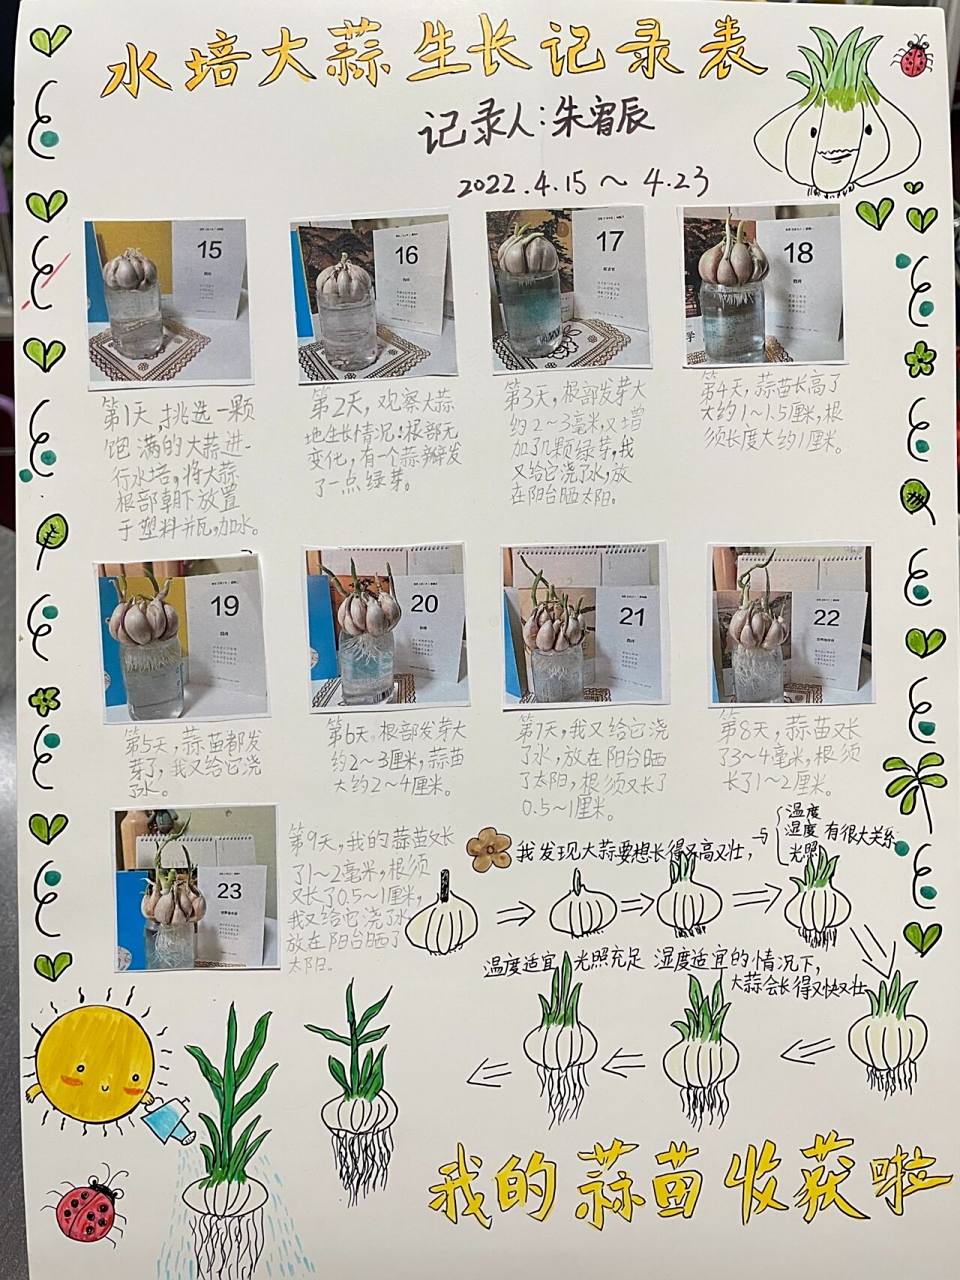 水培大蒜生长记录表
记录人:朱宥辰
2022.4.15～4.23
15
四月
16
17
18
四月
第1天,挑选一颗
饱满的大蒜进
行水培,将大蒜
根部朝下放置
于塑料瓶,加水。
第2天,观察大蒜
地生长情况:根部无
变化,有一个蒜瓣发
了一点绿芽。
第3天,根部发芽大
约2～3毫米,又增
加了几颗绿芽,我
又给它浇了水,放
在阳台晒太阳。
第4天,蒜苗长高了
大约1～1.5厘米,根
须长度大约1厘米。
19
四月
20
21
四月
22
23
第5天,蒜苗都发
芽了,我又给它浇
了水。
第6天。根部发芽大
约2～3厘米,蒜苗
大约2～4厘米。
第7天,我又给它浇
了水,放在阳台晒
了太阳,根须又长了
0.5～1厘米。
第8天,蒜苗又长
了3～4毫米,根须
长了1～2厘米。
第9天,我的蒜苗又长
了1～2毫米,根须
又长了0.5～1厘米,
我又给它浇了水
放在阳台晒了
太阳。
我发现大蒜要想长得又高又壮,与
温度
湿度
光照
有很大关系
温度适宜,光照充足 湿度适宜的情况下,
大蒜会长得又快又壮
我的蒜苗收获啦